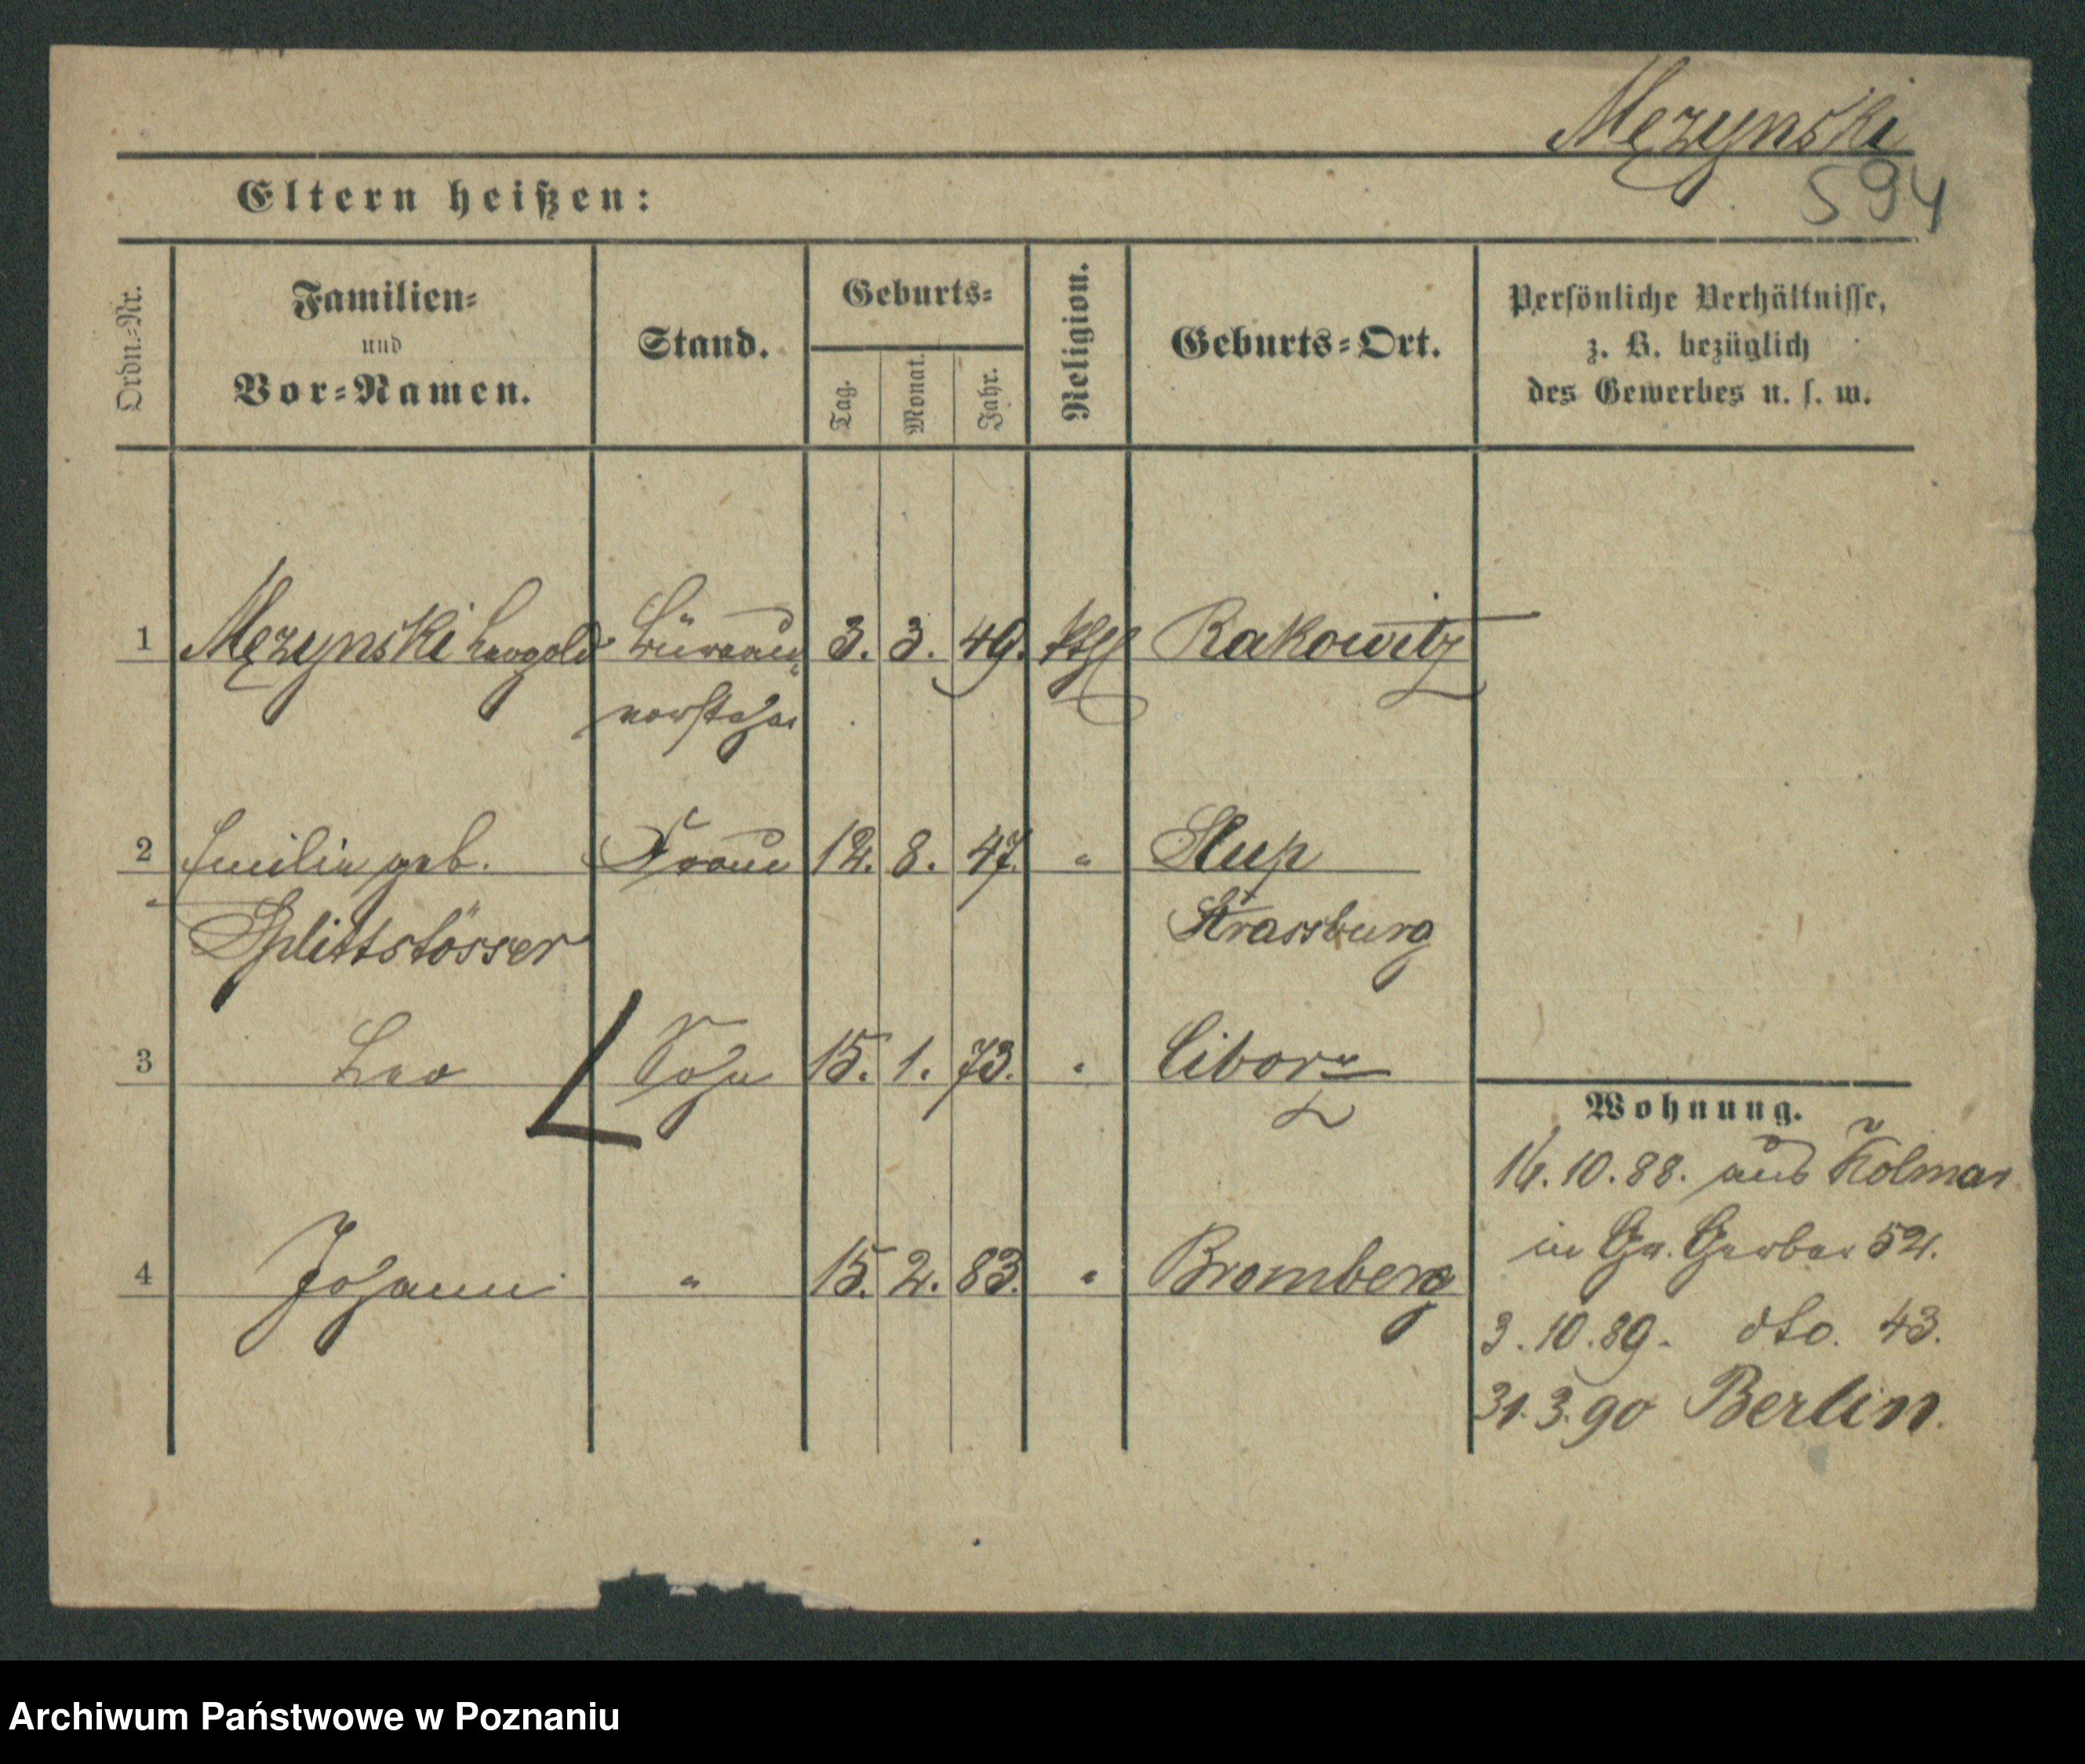 Męzynski
594
Eltern heißen:
Ordn.-Nr.
Familien-
und
Vor-Namen.
Stand.
Geburts-
Tag.
Monat.
Jahr.
Religion.
Geburts-Ort.
Persönliche Verhältnisse,
z. B. bezüglich
des Gewerbes u. s. w.
1 Męzynski Leopold Büreau- 3. 3. 49. kth Rakowitz
vorsteher
2 Emilie geb. Frau 12. 8. 47. " Slup
Splittstösser Strassburg
3 Leo Sohn 15. 1. 73. " Ciborz
4 Johann " 15. 2. 83. " Bromberg
Wohnung.
16.10.88. aus Kolmar
in Gr. Gerber 52.
3.10.89. dto. 43.
31.3.90 Berlin.
Archiwum Państwowe w Poznaniu